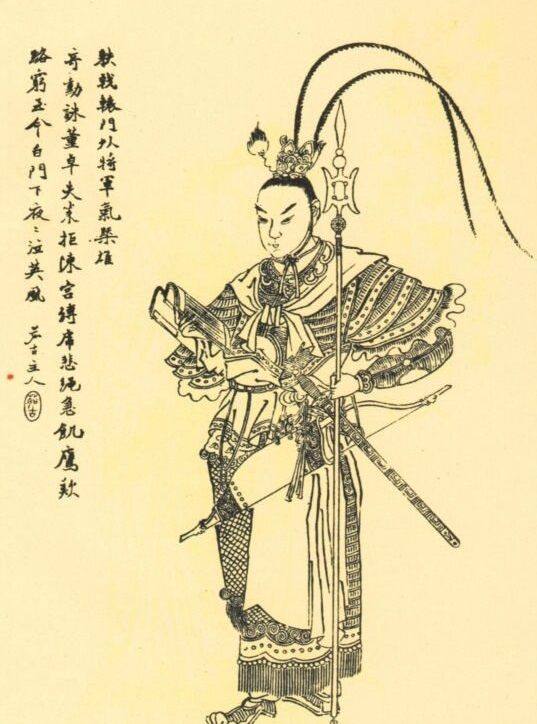 䠶戟轅門外將軍氣槩雄
奇勳誅董卓失策拒陳宮縛虎悲繩急飢鷹歎
路窮至今白門下夜〻泣英風
主人